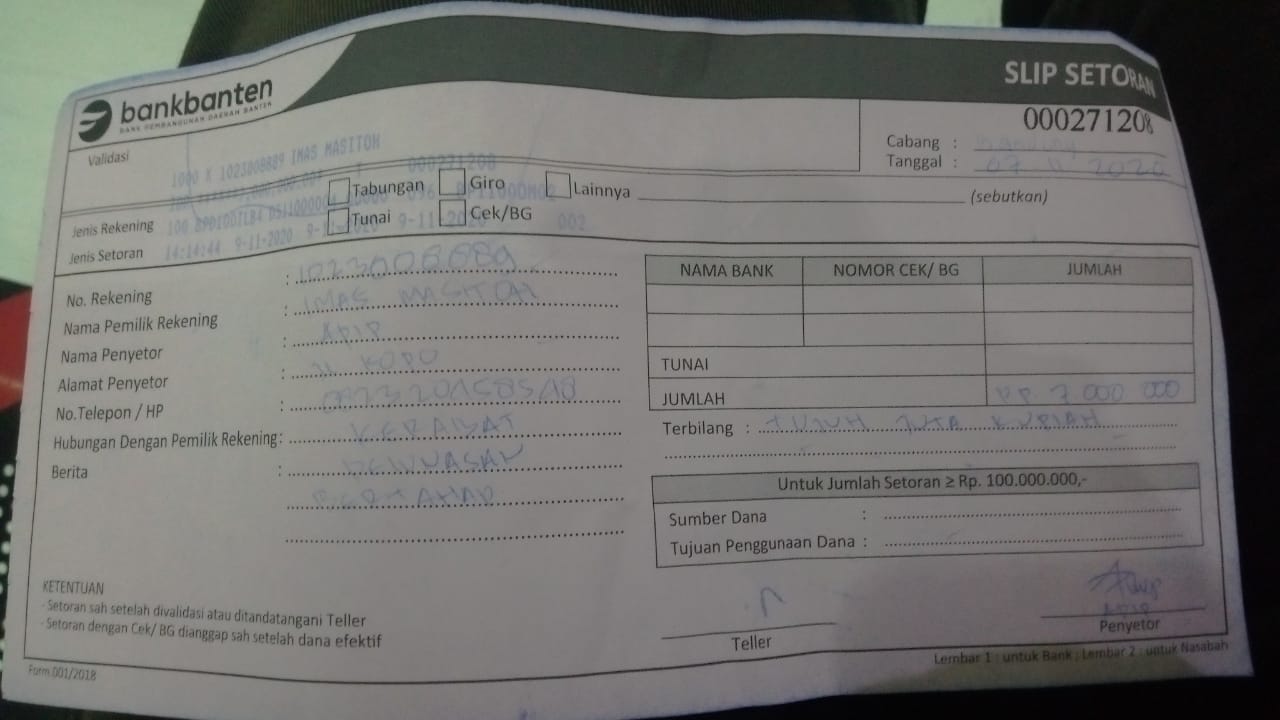 bankbanten
BANK PEMBANGUNAN DAERAH BANTEN
SLIP SETORAN
000271208
Cabang : Bandung
Tanggal : 07 11 2020
Validasi
1000 X 1023008889 IMAS MASITOH
000271208
Jenis Rekening
Tabungan Giro Lainnya
(sebutkan)
Jenis Setoran
Tunai Cek/BG
14:14:44 9-11-2020 9-11-2020 002
No. Rekening :
Nama Pemilik Rekening : IMAS MASITOH
Nama Penyetor : APIP
Alamat Penyetor : JL KOPO
No.Telepon / HP :
Hubungan Dengan Pemilik Rekening: KERABAT
Berita : PELUNASAN
BERTAHAP
NAMA BANK NOMOR CEK/ BG JUMLAH
TUNAI
JUMLAH RP 7 000 000
Terbilang : TUJUH JUTA RUPIAH
Untuk Jumlah Setoran ≥ Rp. 100.000.000,-
Sumber Dana :
Tujuan Penggunaan Dana :
KETENTUAN
- Setoran sah setelah divalidasi atau ditandatangani Teller
- Setoran dengan Cek/ BG dianggap sah setelah dana efektif
Teller
APIP
Penyetor
Form.001/2018
Lembar 1 : untuk Bank ; Lembar 2 : untuk Nasabah